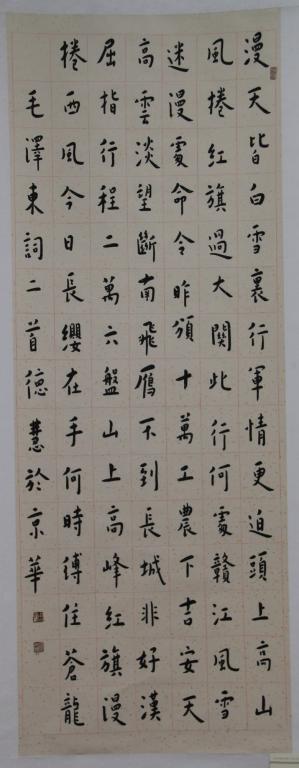 漫天皆白雪裏行軍情更迫頭上高山
風捲紅旗過大關此行何處贛江風雪
迷漫處命令昨頒十萬工農下吉安天
高雲淡望斷南飛雁不到長城非好漢
屈指行程二萬六盤山上高峰紅旗漫
捲西風今日長纓在手何時縛住蒼龍
毛澤東詞二首德慧於京華